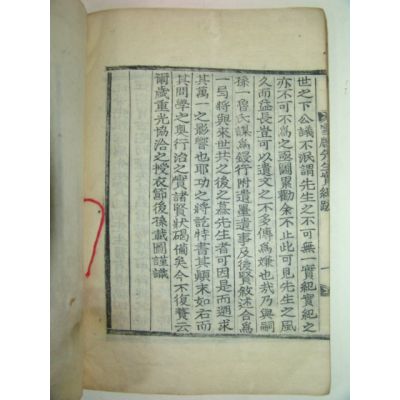 世之下公議不泯謂先生之不可無一實紀實紀之
亦不可不爲之亟圖累勸余不止此可見先生之風
久而益長豈可以遺文之不多傳爲嫌也哉乃與嗣
孫一魯氏謀爲鋟行附遺墨遺事及後賢敘述合爲
一局將與來世共之後之慕先生者可因是而遡求
其萬一之影響也耶功之將訖特書其顚末如右而
其問學之奧行治之實諸賢狀碣備矣今不復贅云
爾歲重光協洽之授衣節後孫載圖謹識
先生實紀跋
一